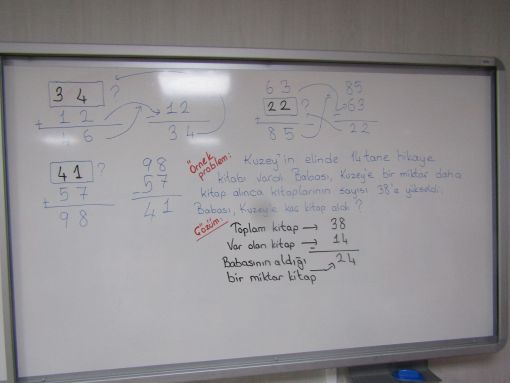 34 ?
+ 12
46
- 12
34
63
22 ?
+
85
85
- 63
22
41 ?
+ 57
98
98
- 57
41
Örnek problem: Kuzey'in elinde 14 tane hikaye
kitabı vardı. Babası, Kuzey'e bir miktar daha
kitap alınca kitaplarının sayısı 38'e yükseldi.
Babası, Kuzey'e kaç kitap aldı ?
Çözüm:
Toplam kitap → 38
Var olan kitap → 14
-
Babasının aldığı
bir miktar kitap → 24